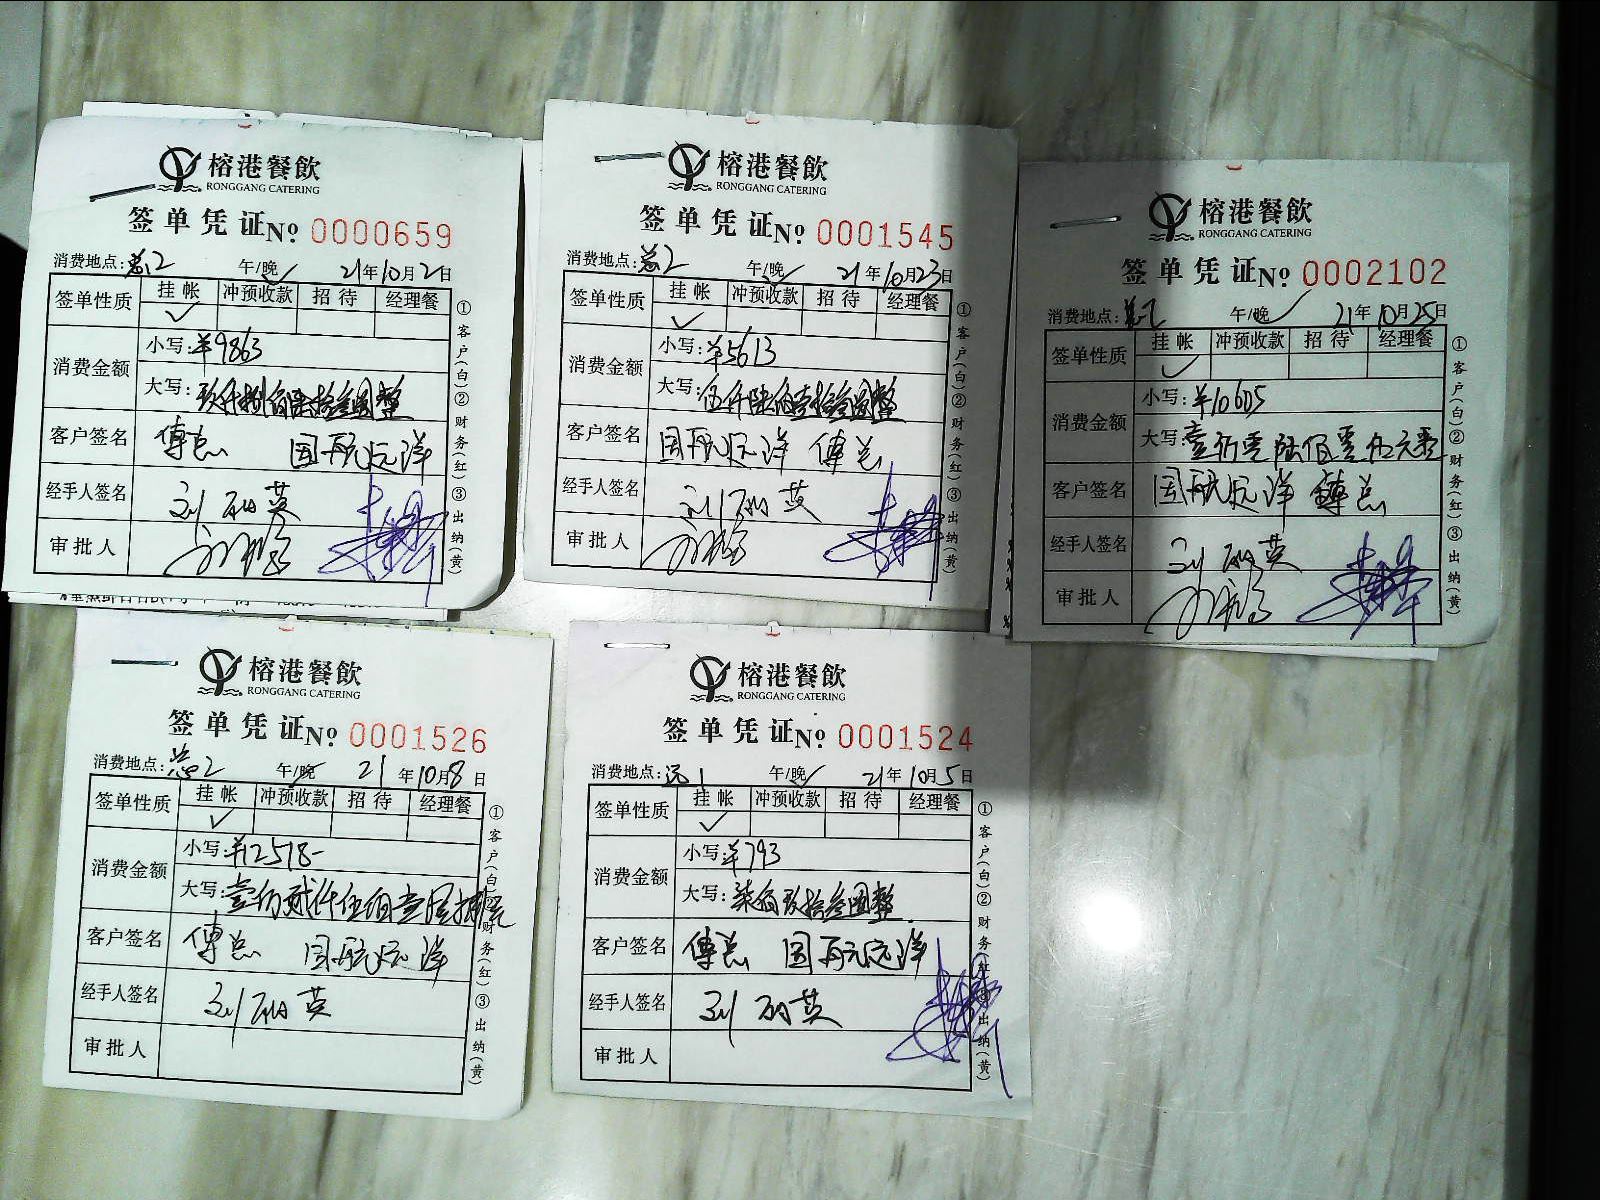 榕港餐飲
RONGGANG CATERING
签单凭证 No 0000659
消费地点：总2 午/晚 21年10月2日
签单性质 挂帐 冲预收款 招待 经理餐
消费金额 小写：¥9863
大写：玖仟捌佰陆拾叁圆整
客户签名 傅总 国航远洋
经手人签名 刘 英
审批人
①客户(白)②财务(红)③出纳(黄)
榕港餐飲
RONGGANG CATERING
签单凭证 No 0001545
消费地点：总2 午/晚 21年10月23日
签单性质 挂帐 冲预收款 招待 经理餐
消费金额 小写：¥5613
大写：伍仟陆佰壹拾叁圆整
客户签名 国航远洋 傅总
经手人签名 刘 英
审批人
①客户(白)②财务(红)③出纳(黄)
榕港餐飲
RONGGANG CATERING
签单凭证 No 0002102
消费地点： 午/晚 21年10月25日
签单性质 挂帐 冲预收款 招待 经理餐
消费金额 小写：¥10605
大写：壹万零陆佰零伍元整
客户签名 国航远洋 傅总
经手人签名 刘 英
审批人
①客户(白)②财务(红)③出纳(黄)
榕港餐飲
RONGGANG CATERING
签单凭证 No 0001526
消费地点：总2 午/晚 21年10月8日
签单性质 挂帐 冲预收款 招待 经理餐
消费金额 小写：¥12518-
大写：壹万贰仟伍佰壹
客户签名 傅总 国航远洋
经手人签名 刘 英
审批人
①客户(白)②财务(红)③出纳(黄)
榕港餐飲
RONGGANG CATERING
签单凭证 No 0001524
消费地点：远1 午/晚 21年10月5日
签单性质 挂帐 冲预收款 招待 经理餐
消费金额 小写：¥793
大写：柒佰玖拾叁圆整
客户签名 傅总 国航远洋
经手人签名 刘 英
审批人
①客户(白)②财务(红)③出纳(黄)